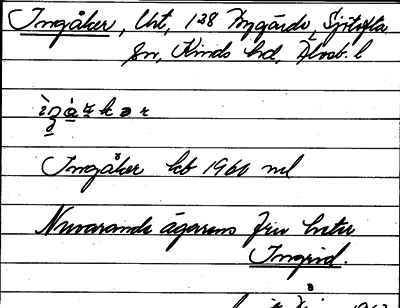 Ingåker, Urt, 128 Nygärde, Sjötofta
sn, Kinds hd, Älvsb. l
Ingåker kb 1960 ml
Nuvarande ägarens fru heter
Ingrid.